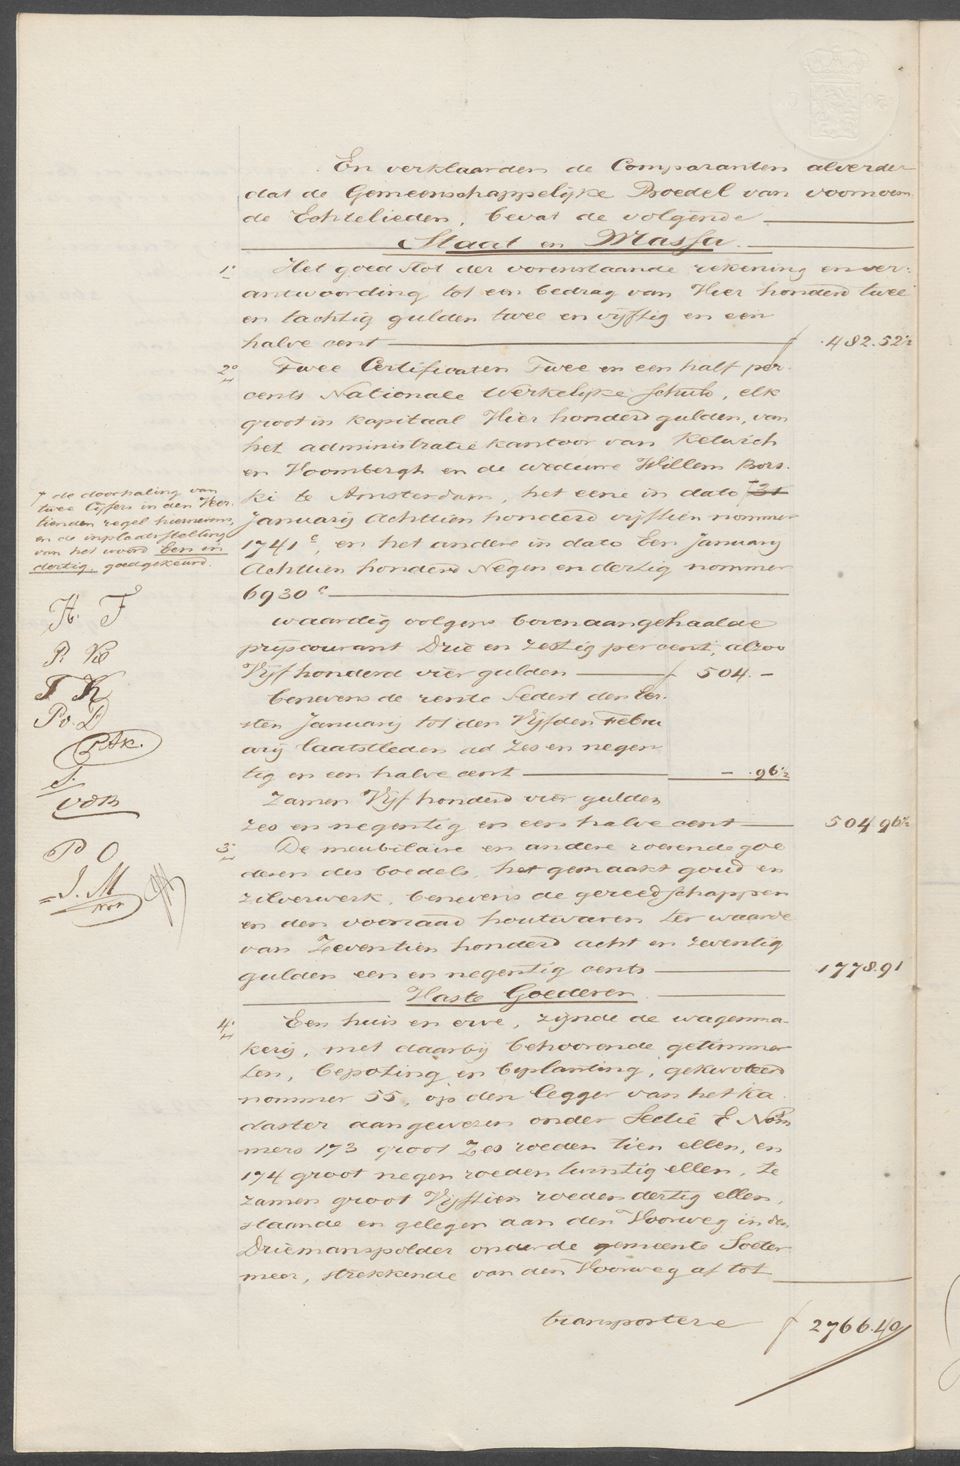 En verklaarden de Comparanten alverder
dat de Gemeenschappelijke Boedel van voornoem
de Echtelieden, bevat de volgende
Staat en Massa.
1° Het goed slot der vorenstaande rekening en ver-
antwoording tot een bedrag van Vier honderd twee
en tachtig gulden twee en vijftig en een
halve cent f 482.52½
2° Twee Certificaten Twee en een half per-
cents Nationale Werkelijke Schuld, elk
groot in kapitaal Vier honderd gulden, van
het administratie kantoor van Ketwich
en Voombergh en de weduwe Willem Bors-
ki te Amsterdam, het eene in dato † 31
Januarij Achttien honderd vijftien nommer
1741 c, en het andere in dato Een Januarij
Achttien honderd Negen en dertig nommer
6930 c
waardig volgens bovenaangehaalde
prijscourant Drie en zestig per cent, alzoo
Vijf honderd vier gulden f 504.-
benevens de rente Sedert den Eer-
sten Januarij tot den Vijfden Febru
arij laatstleden ad zes en negen-
tig en een halve cent - .96½
Zamen Vijf honderd vier gulden
zes en negentig en een halve cent 504 96½
3° De meubilaire en andere roerende goe
deren des boedels, het gemaakt goud en
zilverwerk, benevens de gereedschappen
en den voorraad houtwaren ter waarde
van Zeventien honderd acht en zeventig
gulden een en negentig cents 1778.91
Vaste Goederen.
4° Een huis en erve, zijnde de wagenma-
kerij, met daarbij behoorende getimmer
ten, bepoting en beplanting, gekwoteerd
nommer 55, op den legger van het Ka-
daster aangewezen onder Sectie E Nom
mers 173 groot Zes roeden tien ellen, en
174 groot negen roeden twintig ellen, te
zamen groot Vijftien roeden dertig ellen,
staande en gelegen aan den Voorweg in den
Driemanspolder onder de gemeente Soeter
meer, strekkende van den Voorweg af tot
transportere f 2766.40
† de doorhaling van
twee Cijfers in den Veer-
tienden regel hiernevens,
en de inplaatsstelling
van het woord Een en
dertig, goedgekeurd.
H. F
P. K
T K
Po. D
PAK.
S.
VDB
P O
J. M